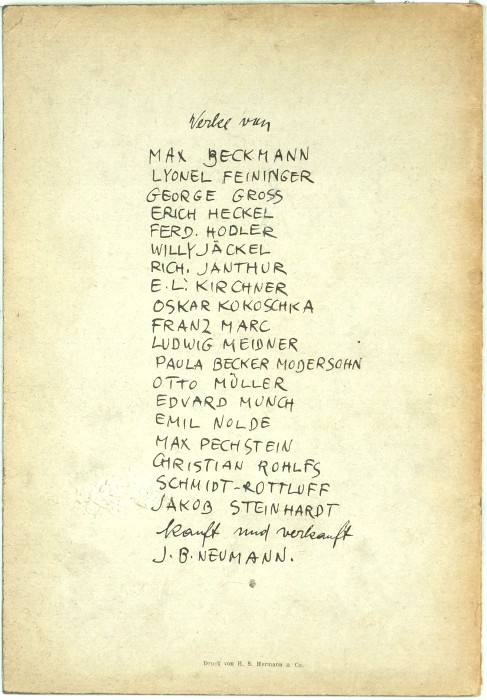 Werke von
MAX BECKMANN
LYONEL FEININGER
GEORGE GROSS
ERICH HECKEL
FERD. HODLER
WILLY JÄCKEL
RICH. JANTHUR
E.L. KIRCHNER
OSKAR KOKOSCHKA
FRANZ MARC
LUDWIG MEIDNER
PAULA BECKER MODERSOHN
OTTO MÜLLER
EDVARD MUNCH
EMIL NOLDE
MAX PECHSTEIN
CHRISTIAN ROHLFS
SCHMIDT-ROTTLUFF
JAKOB STEINHARDT
kauft und verkauft
J.B. NEUMANN.
Druck von H. S. Hermann & Co.